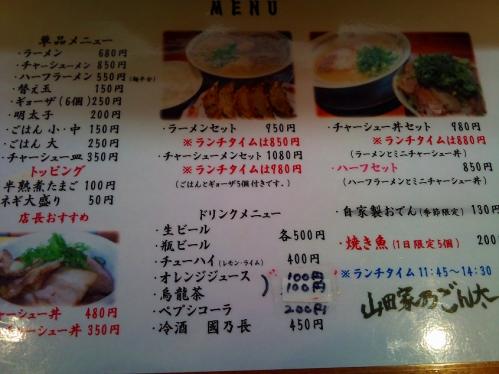 MENU
単品メニュー
・ラーメン 680円
・チャーシューメン 850円
・ハーフラーメン 550円(麺半分)
・替え玉 150円
・ギョーザ(6個) 250円
・明太子 200円
・ごはん 小・中 150円
・ごはん 大 250円
・チャーシュー皿 350円
トッピング
半熟煮たまご 100円
ネギ大盛り 50円
店長おすすめ
チャーシュー丼 480円
チャーシュー丼 350円
・ラーメンセット 950円
※ランチタイムは850円
・チャーシューメンセット 1080円
※ランチタイムは980円
(ごはんとギョーザ5個付きです。)
ドリンクメニュー
・生ビール
・瓶ビール
各500円
・チューハイ(レモン・ライム) 400円
・オレンジジュース 100円
・烏龍茶 100円
・ペプシコーラ 200円
・冷酒 國乃長 450円
・チャーシュー丼セット 980円
※ランチタイムは880円
(ラーメンとミニチャーシュー丼)
・ハーフセット 850円
(ハーフラーメンとミニチャーシュー丼)
・自家製おでん(季節限定) 130円
・焼き魚(1日限定5個) 200
※ランチタイム 11:45~14:30
山田家乃ごん太